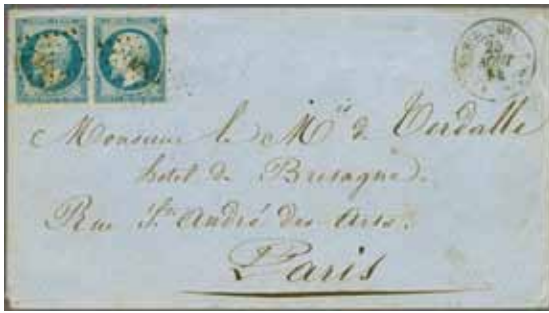 25
AOUT
Monsieur le Mis de Verdalle
hôtel de Bretagne.
Rue St André des Arts.
Paris